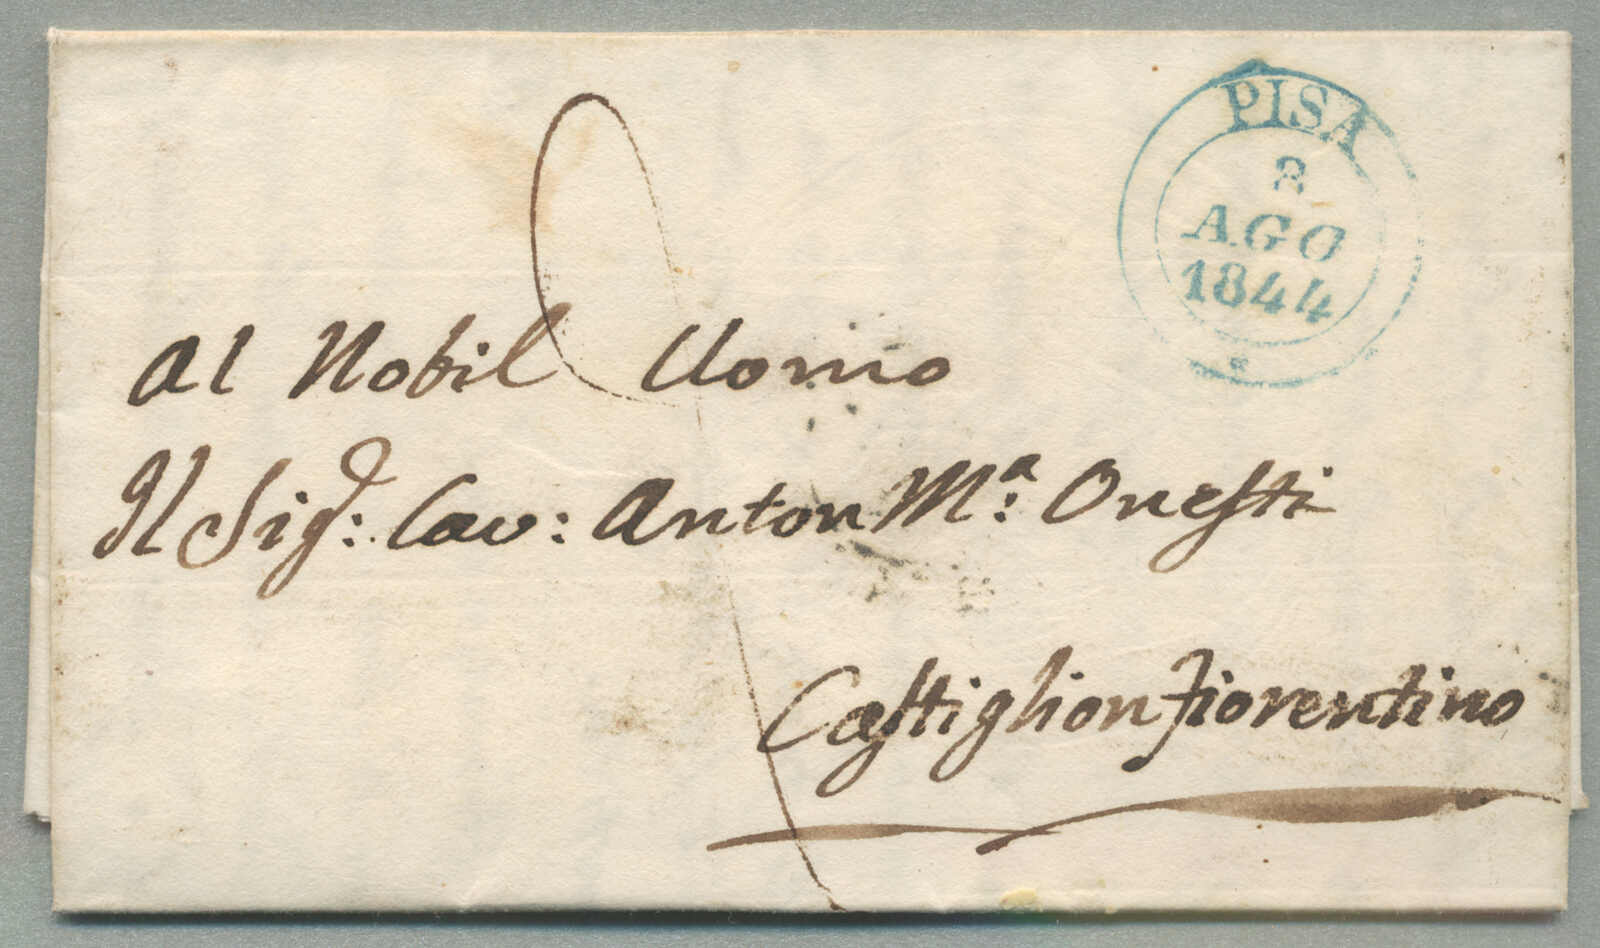 PISA
8
AGO
1844
Al Nobil Uomo
Il Sigr: Cav: Anton Mª: Onesti
Castiglion Fiorentino